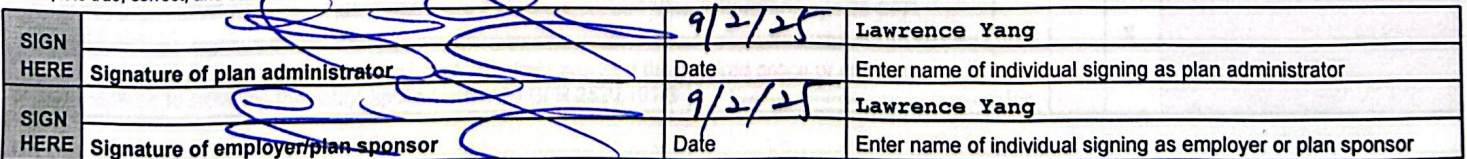 SIGN HERE
9/2/25 Lawrence Yang
Signature of plan administrator Date Enter name of individual signing as plan administrator
SIGN HERE
9/2/25 Lawrence Yang
Signature of employer/plan sponsor Date Enter name of individual signing as employer or plan sponsor